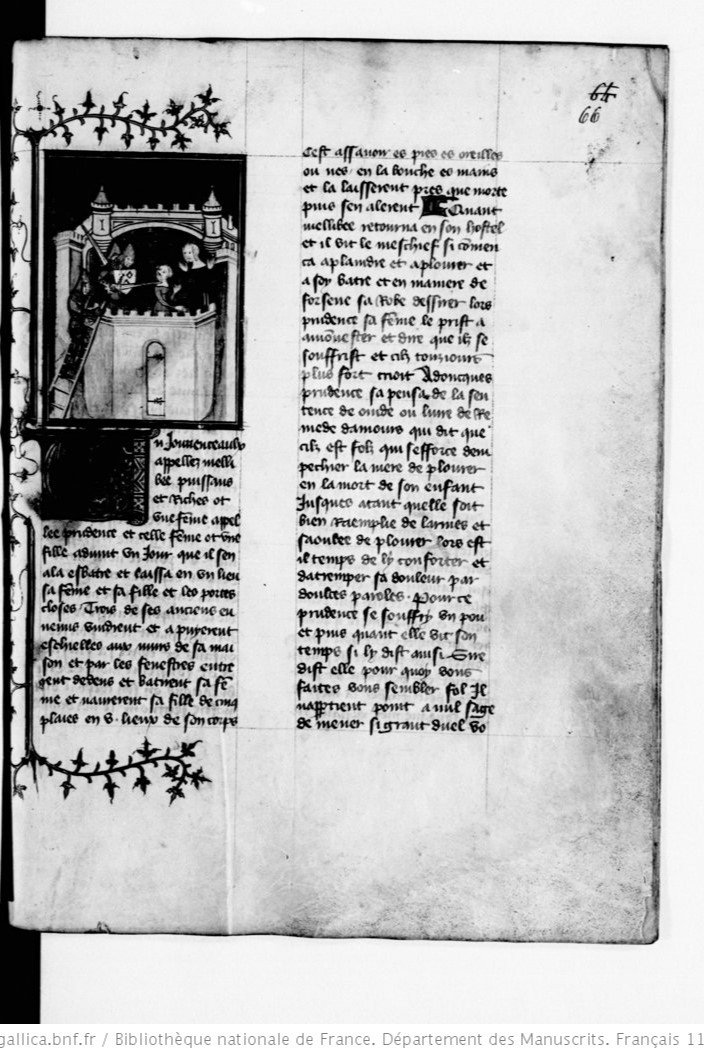 64
66
n Jouvenceaulx
appellez melli
bee puissans
et riches ot
une feme appel
lee prudence et celle feme ot une
fille advint un Jour que il sen
ala esbatre et laissa en un lieu
sa feme et sa fille et les portes
closes Trois de ses anciens en
nemis vindrent et apuyerent
eschielles aux murs de sa mai
son et par les fenestres entre
rent dedens et batirent sa fe
me et navrerent sa fille de cinq
plaies en v. lieux de son corps
Cest assavoir es pies es oreilles
ou nes en la bouche es mains
et la laisserent pres que morte
puis sen alerent Quant
mellibee retourna en son hostel
et il vit le meschief si comen
ca aplaindre et aplourer et
a soy batre et en maniere de
forsene sa robe dessirer lors
prudence sa feme le prist a
amonester et dire que il se
souffrist et cilz tousjours
plus fort crioit Adoncques
prudence sa pensa de la sen
tence de ovide ou livre de Re
mede damours qui dit que
cilz est folz qui sefforce dem
pechier la mere de plourer
en la mort de son enfant
Jusques atant quelle soit
bien raemplie de larmes et
saoulee de plourer lors est
il temps de ly conforter et
datremper sa douleur par
doulces paroles. Pource
prudence se souffry un pou
et puis quant elle vit son
temps si ly dist ainsi Sire
dist elle pour quoy vous
faites vous sembler fol Il
napptient point a nul sage
de mener si grant duel vo
gallica.bnf.fr / Bibliothèque nationale de France. Département des Manuscrits. Français 11